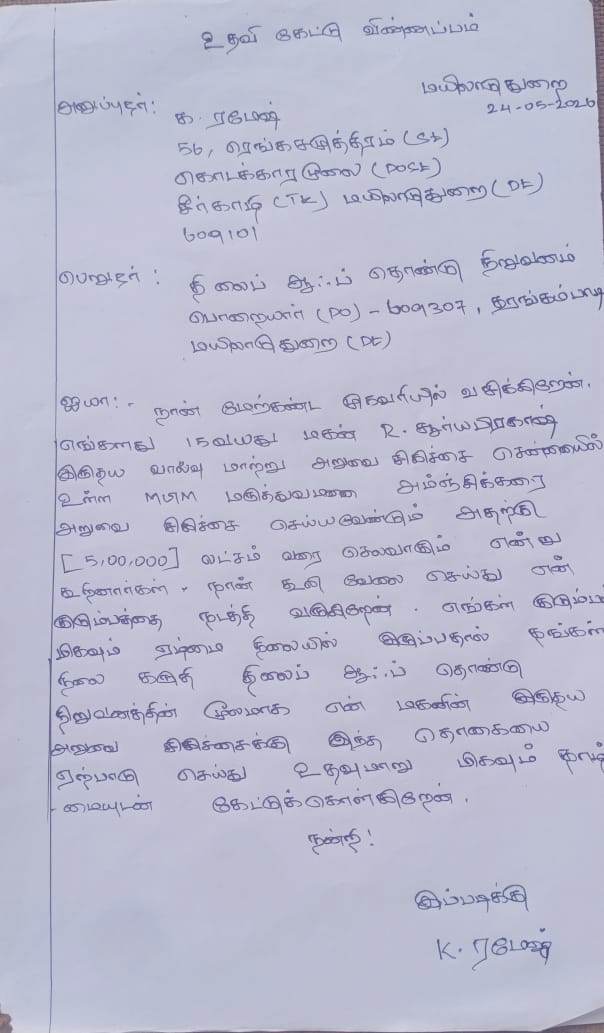 உதவி கேட்டு விண்ணப்பம்
மயிலாடுதுறை
24-05-2026
அனுப்புநர்:
க. ரமேஷ்
56, ரெங்கசமுத்திரம் (ST)
கொடக்காரமூலை (POST)
சீர்காழி (TK) மயிலாடுதுறை (DT)
609101
பெறுநர் :
தி லைப் ஆஃப் தொண்டு நிறுவனம்
பொறையார் (PO) - 609307, தரங்கம்பாடி
மயிலாடுதுறை (DT)
ஐயா:- நான் மேற்கண்ட முகவரியில் வசிக்கிறேன்.
எங்களது 15 வயது மகன் R.
இருதய வால்வு மாற்று அறுவை சிகிச்சை சென்னையில்
உள்ள MGM மருத்துவமனை அமைந்தகரை
அறுவை சிகிச்சை செய்ய வேண்டும் அதற்கு
[5,00,000] லட்சம் வரை செலவாகும் என்று
கூறினார்கள். நான் கூலி வேலை செய்து என்
குடும்பத்தை நடத்தி வருகிறேன். எங்கள் குடும்பம்
மிகவும் ஏழ்மை நிலையில் இருப்பதால் எங்கள்
நிலை கருதி தி லைப் ஆஃப் தொண்டு
நிறுவனத்தின் மூலமாக என் மகனின் இருதய
அறுவை சிகிச்சைக்கு இந்த தொகையை
ஏற்பாடு செய்து உதவுமாறு மிகவும் தாழ்
- மையுடன் கேட்டுக்கொள்கிறேன்.
நன்றி!
இப்படிக்கு
K. ரமேஷ்